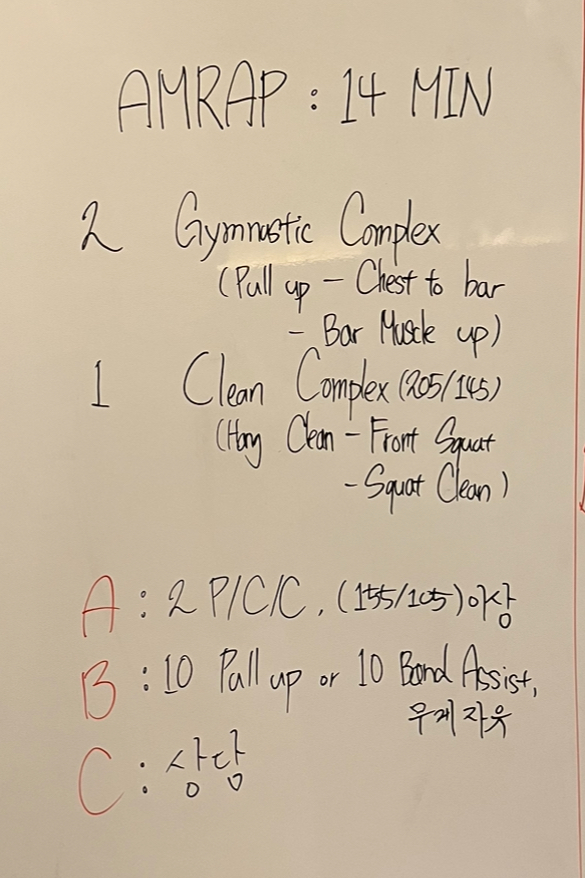 AMRAP : 14 MIN
2 Gymnastic Complex
(Pull up - Chest to bar
- Bar Muscle up)
1 Clean Complex (205/145)
(Hang Clean - Front Squat
- Squat Clean)
A : 2 P/C/C, (155/105)이상
B : 10 Pull up or 10 Band Assist,
무게 자유
C : 상담